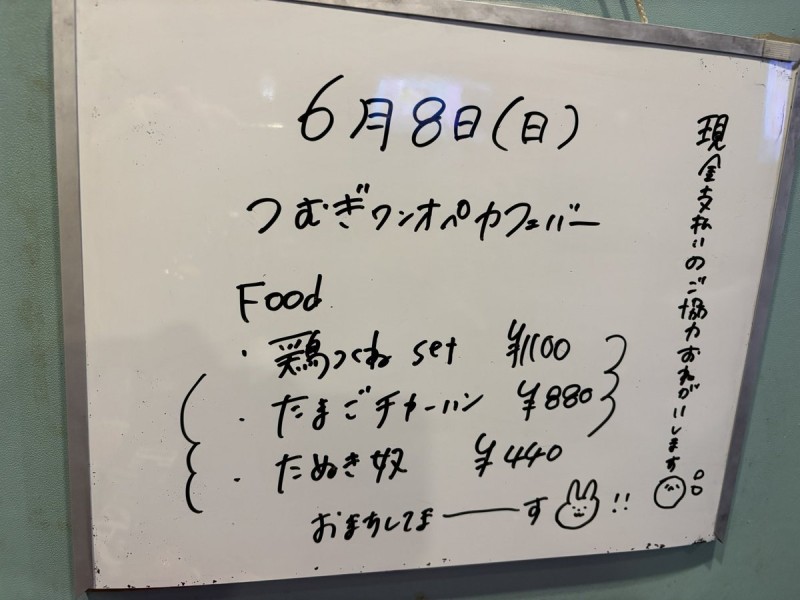 6月8日(日)
つむぎワンオペカフェバー
Food
・鶏つくね set ¥1100
・たまごチャーハン ¥880
・たぬき奴 ¥440
おまちしてま――す !!
現金支払いのご協力おねがいします